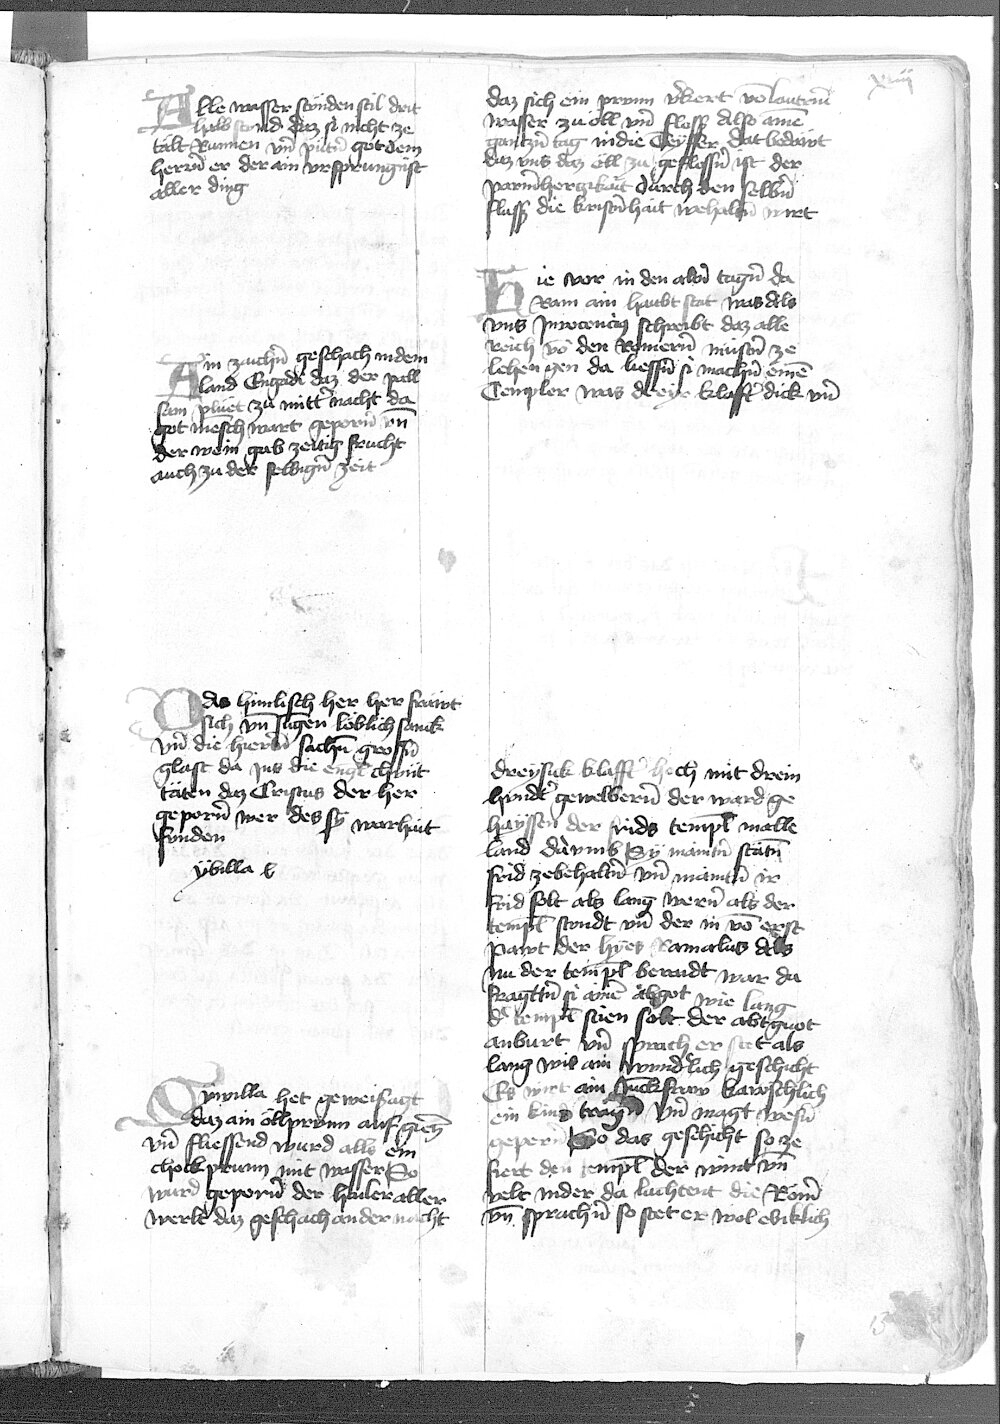 xviij
Alle wasser stůnden stil drit
halb stund daz si nicht ze
tält Runnen vn̄ putn̄ got dem
herrn̄ er der ain vrsprung ist
aller ding
Ain zaichn̄ geschach in dem
land Engadi daz der pall
sam plüet zu mitt̄ nacht da
got mēsch wart geporn̄ vn̄
der wein gab zeitig frucht
auch zu der selbign̄ zeit
Das himlisch her her fräwt
sich vn̄ sūgen löblich sanck
vn̄ die hiertn̄ sachn̄ grossn̄
glast da Ins die engl̄ chunt
täten daz Cristus der her
geporn̄ wer des sÿ warhait
funden
ybilla
Sywilla het geweissagt
daz ain öllprunn auf
vn̄ fliessend wurd alls ein
chockprunn mit wasser So
wurd geporn̄ der hailer aller
werlt daz geschach an der nacht
daz sich ein prunn v̄kert vō lautrm̄
wasser zu öll vn̄ floss Also ainē
gantzn̄ tag in die Teysser dat bedäwt
daz vns daz öll zu geflossn̄ ist der
parm̄herzikait durch den selbn̄
fluss die kristn̄hait wehaltn̄ wirt
Hie vor in den altn̄ tagn̄ da
Ram ain haubt stat was Als
vns Innocencius schreibt daz alle
Reich vō den Romern̄ müstn̄ ze
lehen gen da liessn̄ si machn̄ einē
Templer was dreye klafft̄ dick vn̄
dreyssk klafft̄ hoch mit drein
hundt̄ gewelbern̄ der ward ge
hayssen der frids templ̄ in alle
land dar vmb Sy maintn̄ stätn̄
frid ze behaltn̄ vn̄ maintn̄ ir
frid solt als lang wern̄ als der
templ̄ stundt vn̄ der in vō erst
pawt der hyes Ramalus Als
nu der templ̄ beraidt war da
fragttn̄ si ainē abgot wie lang
d̄ templ̄ sten solt der abtgot
anburt vn̄ sprach er stet als
lang wis ain wund̄lich geschicht
Es wirt ain Junckfraw kawschlich
ein kind tragn̄ vn̄ magt wesn̄
geporn̄ So das geschicht so ze
fiert den templ̄ der wint vn̄
velt nider da lachtent die Rōm̄
vn̄ sprachn̄ so stet er wol ebiklich
13